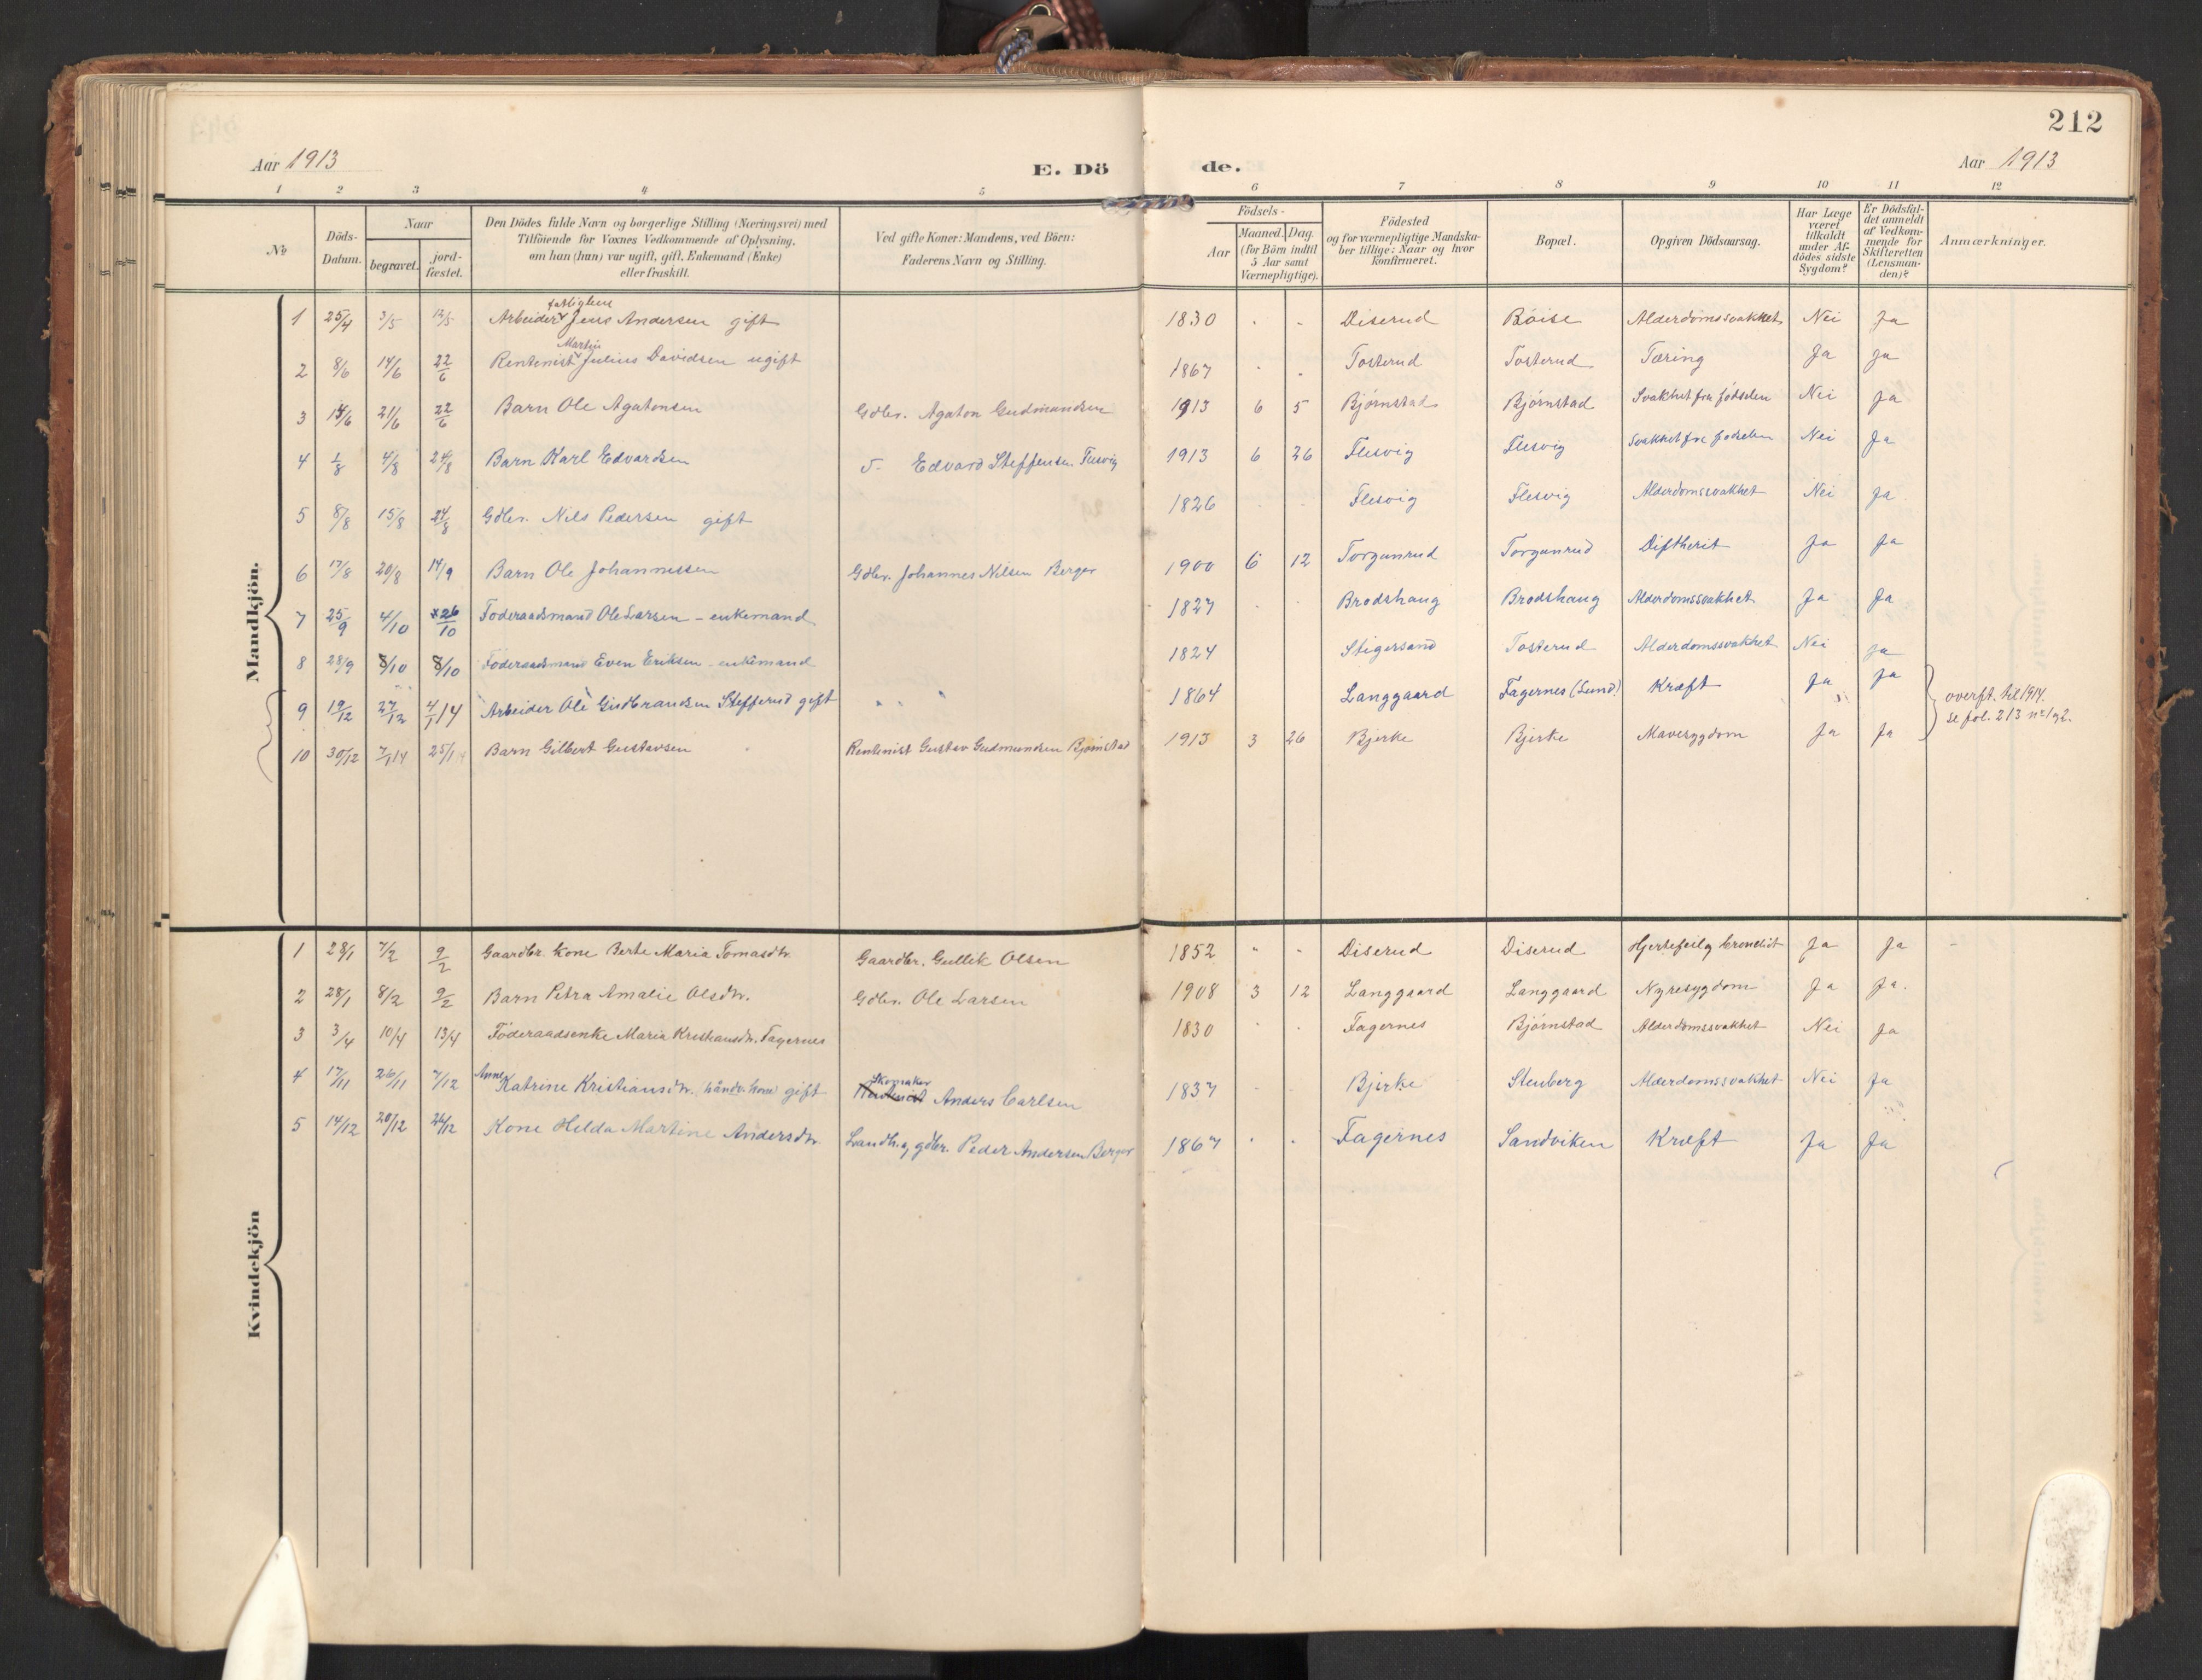 212
Aar 1913
E. Dö
de.
Aar 1913
1 2 3 4 5 6 7 8 9 10 11 12
No
Döds-Datum.
Naar
begravet.
jord-fæstet.
Den Dödes fulde Navn og borgerlige Stilling (Næringsvei) med
Tilföiende for Voxnes Vedkommende af Oplysning,
om han (hun) var ugift, gift, Enkemand (Enke)
eller fraskilt.
Ved gifte Koner: Mandens, ved Börn:
Faderens Navn og Stilling.
Födsels-
Aar
Maaned. Dag.
(for Börn indtil
5 Aar samt
Værnepligtige).
Födested
og for værnepligtige Mandska-
ber tillige: Naar og hvor
konfirmeret.
Bopæl.
Opgiven Dödsaarsag.
Har Læge
været
tilkaldt
under Af-
dödes sidste
Sygdom?
Er Dödsfal-
det anmeldt
af Vedkom-
mende for
Skifteretten
(Lensman-
den)?
Anmærkninger.
Mandkjön.
fattiglem
1 25/4 3/5 12/5 Arbeider Jens Andersen gift 1830 " " Diserud Böise Alderdomssvakhet Nei Ja
Martin
2 8/6 14/6 22/6 Rentenist Julius Davidsen ugift 1867 " " Tosterud Tosterud Tæring Ja Ja
3 15/6 21/6 22/6 Barn Ole Agatonsen Gdbr. Agaton Gudmundsen 1913 6 5 Bjørnstad Bjørnstad Svakhet fra fødselen Nei Ja
4 1/8 4/8 24/8 Barn Karl Edvardsen Edvard Steffensen Flesvig 1913 6 26 Flesvig Flesvig Svakhet fra fødselen Nei Ja
5 8/8 15/8 24/8 Gdbr. Nils Pedersen gift 1826 " " Flesvig Flesvig Alderdomssvakhet Nei Ja
6 17/8 20/8 14/9 Barn Ole Johannessen Gdbr. Johannes Nilsen Berger 1900 6 12 Torgunrud Torgunrud Diftherit Ja Ja
7 25/9 4/10 x26/10 Föderaadsmand Ole Larsen - enkemand 1827 " " Brodshaug Brodshaug Alderdomssvakhet Ja Ja
8 28/9 8/10 8/10 Föderaadsmand Even Eriksen - enkemand 1824 Stigersand Tosterud Alderdomssvakhet Nei Ja
9 19/12 27/12 4/1 14 Arbeider Ole Gudbrandsen Stefferud gift " " 1864 Langgaard Fagernes (Lund) Kræft Ja Ja overft. til 1914.
se fol. 213 nr 1 og 2.
10 30/12 7/1 14 25/1 Barn Gilbert Gustavsen Rentenist Gustav Gudmundsen Bjørnstad 1913 3 26 Bjerke Bjerke Mavesygdom Ja Ja
Kvindekjön
1 28/1 7/2 9/2 Gaardbr. kone Berte Maria Tomasdtr. Gaardbr. Gullek Olsen 1852 " " Diserud Diserud Hjertefeil og bronchit Ja Ja
2 28/1 8/2 9/2 Barn Petra Amalie Olsdtr. Gdbr. Ole Larsen 1908 3 12 Langgaard Langgaard Nyresygdom Ja Ja.
3 3/4 10/4 13/4 Föderaadsenke Maria Kristiansdtr. Fagernes 1830 " " Fagernes Bjørnstad Alderdomssvakhet Nei Ja
Anne Skomaker
4 17/11 26/11 7/12 Katrine Kristiansdtr. (håndv. kone) gift Rentenist Anders Carlsen 1837 " " Bjerke Stenberg Alderdomssvakhet Nei Ja
5 14/12 20/12 26/12 Kone Helda Martine Andersdtr. Landh. og gdbr. Peder Andersen Berger 1867 " " Fagernes Sandviken Kræft Ja Ja